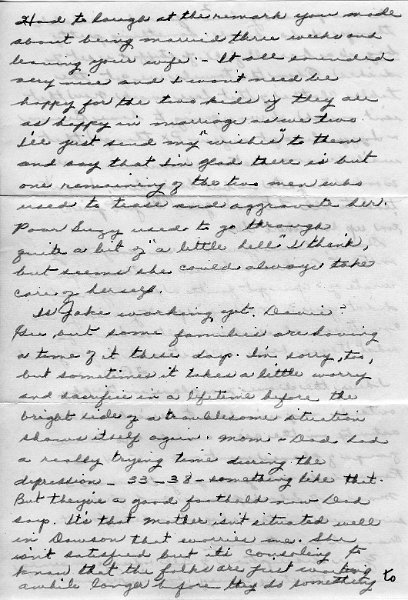 Had to laugh at the remark you made
about being married three weeks and
leaving your wife. - It all sounded
very nice and I won't need be
happy for the two kids if they are
as happy in marriage as we two
I'll just send my "wishes" to them
and say that I'm glad there is but
one remaining of the two men who
used to tease and aggravate her.
Poor Suzy used to go through
quite a bit of "a little hell" I think,
but seems she could always take
care of herself.
Is Jake working yet,
Gee, but some families are having
a time of it these days. I'm sorry, too,
but sometimes it takes a little worry
and sacrifice in a lifetime before the
bright side of a troublesome situation
shows itself again. Mom - Dad had
a really trying time during the
depression - 33-38 - something like that.
But they've a good foothold now Dad
says. It's that mother isn't situated well
in Dawson that worries me. She
isn't satisfied but it's consoling to
know that the folks are just waiting
awhile longer before they do something to